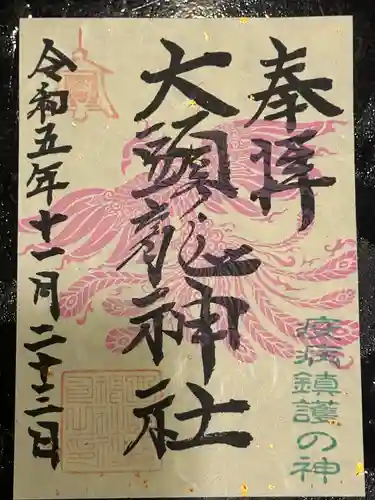 奉拝
疫病鎮護の神
大頭龍神社
令和五年十一月二十三日